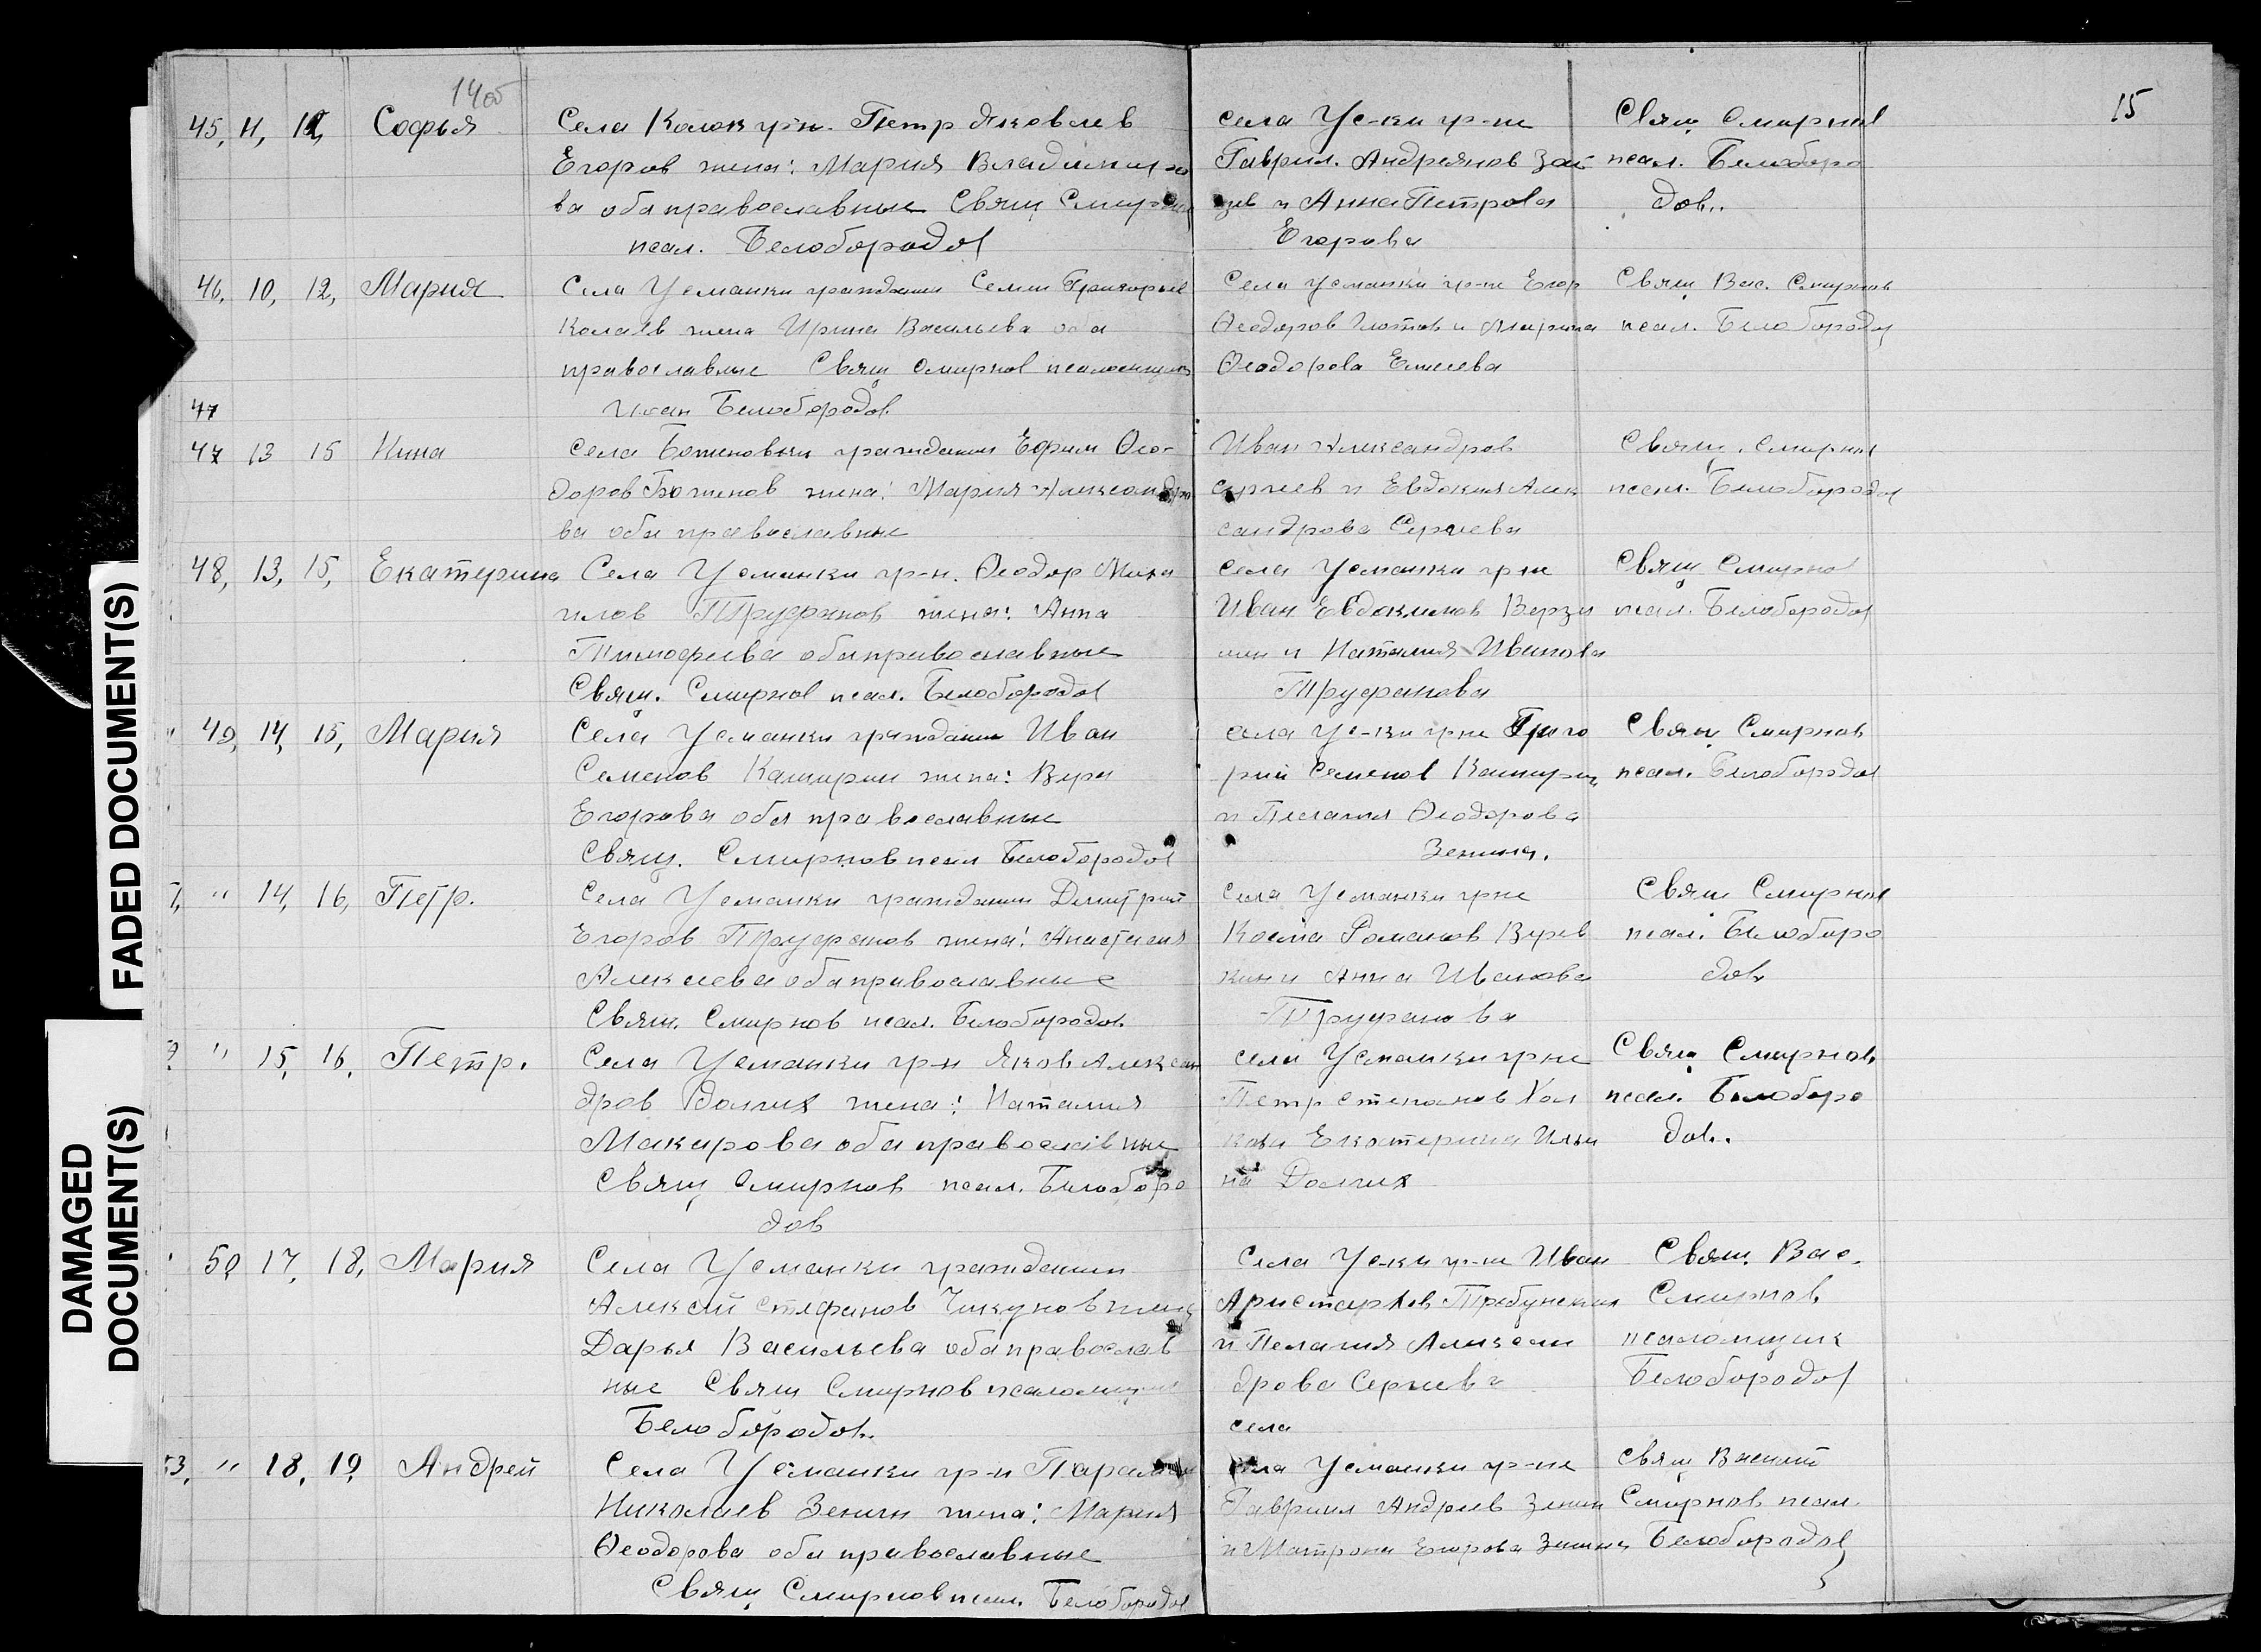 14об
15
45, 11, 12, Софья
Села Колок гр-н. Петр Яковлев
Егоров жена: Мария Владимиро
ва оба православные Свящ Смирнов
псал. Белобородов
села Ус-ки гр-не
Гаврил. Андреянов Зай
цев и Анна Петрова
Егорова
Свящ Смирнов
псал. Белоборо
дов.
46, 10, 12, Мария
Села Усманки гражданин Семен Григорьев
жена Ирина Васильева оба
православные Свящ Смирнов псаломщик
Иоан Белобородов
Села Усманки гр-не Егор
Ѳеодоров и Марина
Ѳеодорова
Свящ Вас. Смирнов
псал. Белобородов
47
47 13 15 Нина
Села Боженовки гражданин Ефим Ѳео-
доров Боженов жена: Мария Александро
ва оба православные
Иван Александров
Сергеев и Евдокия Алек
сандрова Сергеева
Свящ. Смирнов
псал. Белобородов
48, 13, 15, Екатерина
Села Усманки гр-н. Ѳеодор Миха
илов Труфанов жена: Анна
Тимофеева оба православные
Свящ. Смирнов псал. Белобородов
Села Усманки гр не
Иван Евдокимов
и Наталия Иванова
Труфанова
Свящ Смирнов
псал. Белобородов
49, 14, 15, Мария
Села Усманки гражданин Иван
Семенов Каширин жена: Вера
Егорова оба православные
Свящ. Смирнов псал Белобородов
села Ус-ки гр не Григо
рий Семенов Каширин
и Пелагия Ѳеодорова
Зенина.
Свящ Смирнов
псал. Белобородов
" 14, 16, Петр.
Села Усманки гражданин Димитрий
Егоров Труфанов жена: Анастасия
Алексеева оба православные
Свящ. Смирнов псал. Белобородов
Села Усманки гр не
Косма Романов Верев
кин и Анна Иванова
Труфанова
Свящ Смирнов
псал. Белоборо
дов
" 15, 16, Петр.
Села Усманки гр-н Яков Алексан
дров Долгих жена: Наталия
Макарова оба православные
Свящ Смирнов псал. Белоборо
дов
села Усманки гр не
Петр Степанов
Екатерина Ильи
на Долгих
Свящ Смирнов
псал. Белоборо
дов.
50, 17, 18, Мария
Села Усманки гражданин
Алексей Стефанов Чикунов жена
Дарья Васильева оба православ
ные Свящ Смирнов псаломщик
Белобородов.
Села Ус-ки гр-не Иван
Аристархов Требунских
и Пелагия Алексан
дрова Сергеева
села
Свящ. Вас.
Смирнов
псаломщик
Белобородов
53, " 18, 19, Андрей
Села Усманки гр-н Парамон
Николаев Зенин жена: Мария
Ѳеодорова оба православные
Свящ Смирнов псал. Белобородов
села Усманки гр-не
Гавриил Андреев Зенин
и Матрона Егорова Зенина
Свящ Василий
Смирнов псал.
Белобородов
FADED DOCUMENT(S)
DAMAGED
DOCUMENT(S)